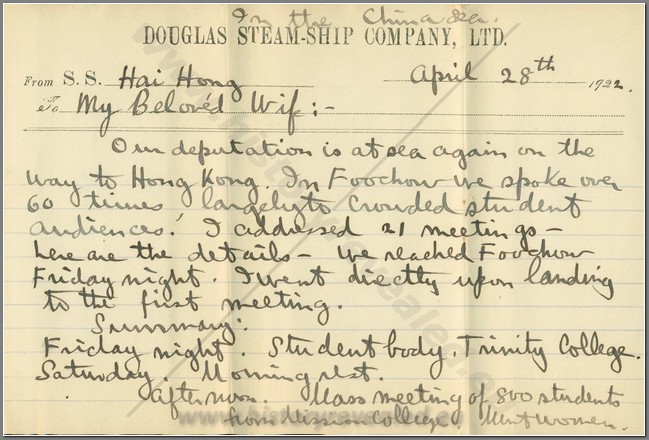 In the China Sea.
DOUGLAS STEAM-SHIP COMPANY, LTD.
From S. S. Hai Hong April 28th 1922.
To My Beloved Wif:-
Our deputation is at sea again on the
way to Hong Kong. In Foochow we spoke over
60 times largely to crowded student
audiences! I addressed 21 meetings—
here are the details— we reached Foochow
Friday night. I went directly upon landing
to the first meeting.
Summary:
Friday night. Student body, Trinity College.
Saturday. Morning rest.
Afternoon. Mass meeting of 800 students
from Mission College. women.